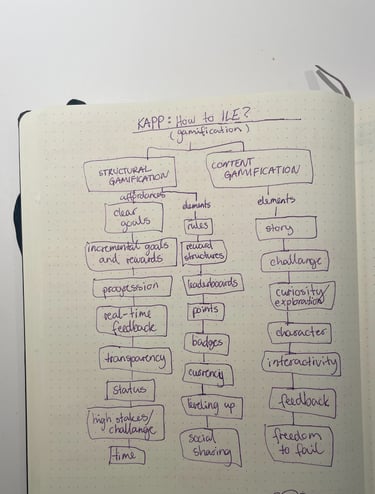 KAPP: How to ILE?
(gamification)
STRUCTURAL
GAMIFICATION
CONTENT
GAMIFICATION
affordances
clear
goals
incremental goals
and rewards
progression
real-time
feedback
transparency
status
high stakes/
challange
time
elements
rules
reward
structures
leaderboards
points
badges
currency
leveling up
social
sharing
elements
story
challange
curiosity/
exploration
character
interactivity
feedback
freedom
to fail